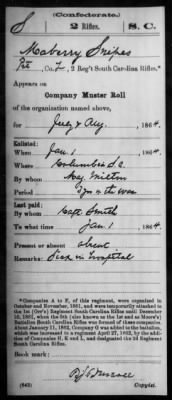 (Confederate.)
S 2 Rifles. S. C.
Maberry Snipes
Pvt, Co. I, 2 Reg't South Carolina Rifles.*
Appears on
Company Muster Roll
of the organization named above,
for July & Aug, 1864.
Enlisted:
When Jan 1, 1864.
Where Columbia S.C.
By whom Maj Melton
Period 3 yrs or the War
Last paid:
By whom Capt Smith
To what time Jan 1, 1864.
Present or absent Absent
Remarks: Sick in Hospital
*Companies A to F, of this regiment, were organized in
October and November, 1861, and were temporarily attached to
the 1st (Orr's) Regiment South Carolina Rifles until December
16, 1861, when the 5th (also known as the 1st and as Moore's)
Battalion South Carolina Rifles was formed of these companies.
About January 11, 1862, Company G was added to the battalion,
which was increased to a regiment April 27, 1862, by the addition
of Companies H, K and L, and designated the 2d Regiment
South Carolina Rifles.
Book mark:
(642)
Copyist.